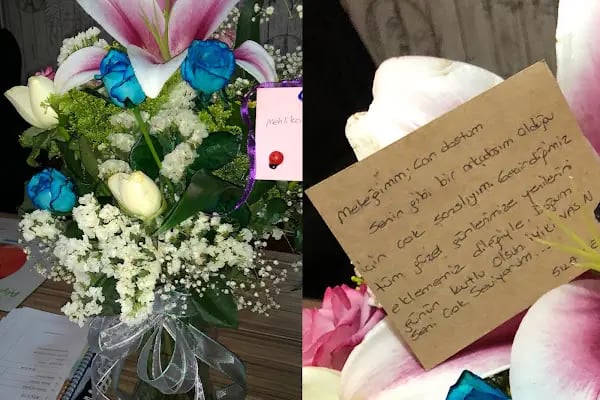 Mehlika
Meleğimm; Can dostum
Senin gibi bir arkadaşım olduğu
için çok şanslıyım. Geçirdiğimiz
tüm güzel günlerimize yenilerini
eklememiz dileğiyle. Doğum
günün kutlu olsun. İyiki varsın
Seni çok seviyorum...